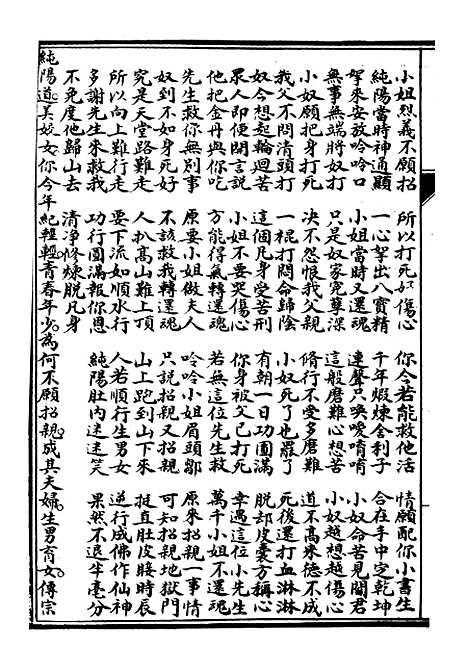 小姐烈義不願招　所以打死奴傷心　你今若能救他活　情願配你小書生
純陽當時神通顯　一心挐出八寶精　千年煅煉舍利子　合在手中定乾坤
挐來安放唅唅口　小姐當時又還魂　連聲只喚嗳唷唷　小奴命苦見閻君
無事無端將奴打　只是奴家冤孽深　這般磨難心想苦　小奴越想越傷心
小奴願把身打死　決不怨恨我父親　脩行不受多磨難　道不高來德不成
我父不問清頭打　一棍打悶命歸陰　小奴死了也罷了　死後還打血淋淋
奴今想起輪迴苦　這個凡身受苦刑　有朝一日功圓滿　脫却皮囊方稱心
衆人即便開言說　小姐不要哭傷心　你身被父已打死　幸遇這位小先生
他把金丹與你吃　方能得氣轉還魂　若無這位先生救　萬千小姐不還魂
先生救你無別事　原要小姐做夫人　唅唅小姐眉頭鄒　原來招親這事情
奴到不如身死好　不該救我轉還魂　只說招親又招親　可知招親地獄門
究是天堂路難走　人扒高山難上頂　山上跑到山下來　挺直肚皮賤時辰
所以向上難行走　要下流如順水行　人若順行生男女　逆行成佛作仙神
多謝先生來救我　功行圓滿報你恩　純陽肚內迷迷笑　果然不退半毫分
不免度他歸山去　清淨修煉脫凡身
純陽道。美姣女。你今年紀輕輕。青春年少。為何不願招親。成其夫婦。生男育女。傳宗